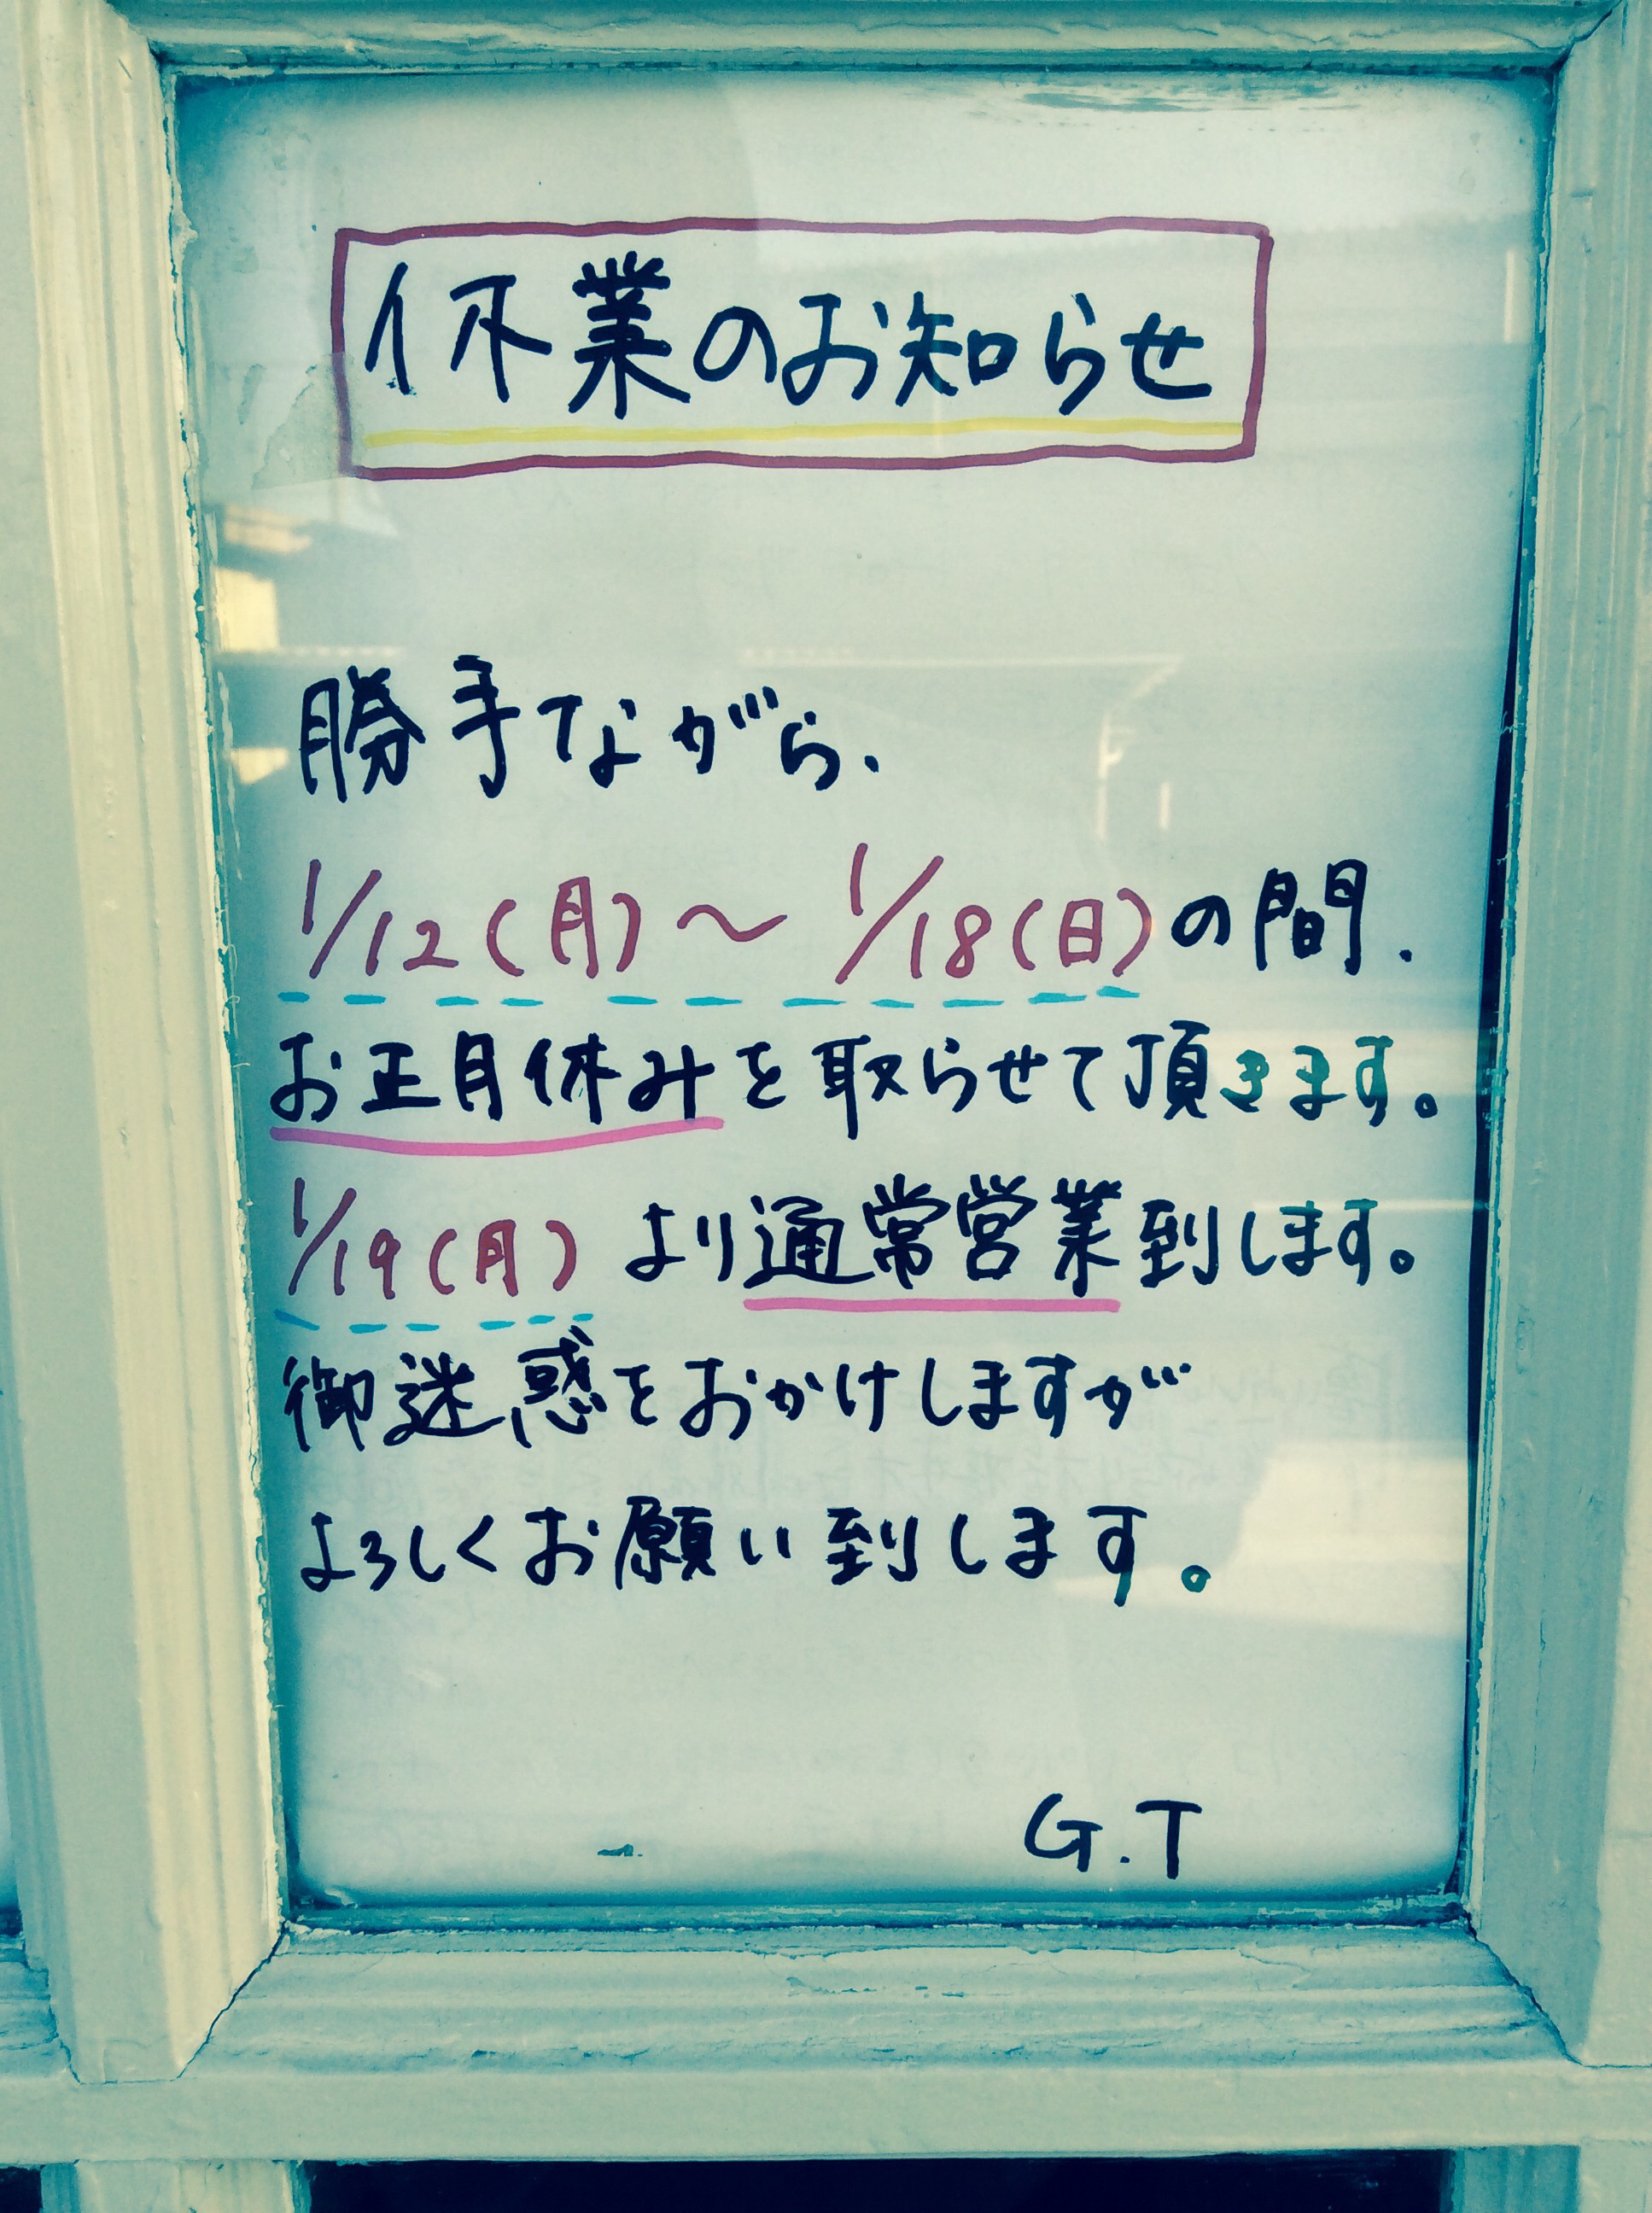 休業のお知らせ
勝手ながら、
1/12(月)～1/18(日)の間、
お正月休みを取らせて頂きます。
1/19(月)より通常営業到します。
御迷惑をおかけしますが
よろしくお願い到します。
G.T